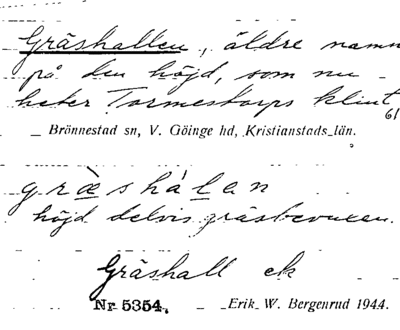 Gräshallen, äldre namn
på den höjd, som nu
heter Tormestorps klint
61
Brönnestad sn, V. Göinge hd, Kristianstads län.
græshàlen
höjd delvis gräsbevuxen.
Gräshall ek
Nr 5354. Erik W. Bergenrud 1944.